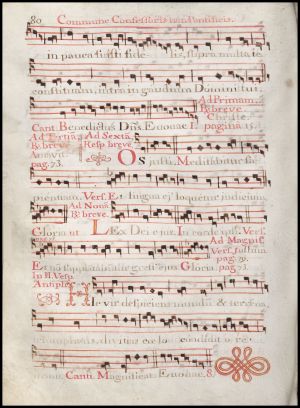 80. Commune Confessoris non Pontificis.
in pauca fuisti fidelis, supra multa te
constituam, intra in gaudium Domini tui.
Ad Primam.
R. breve.
Christe.
Cant. Benedictus Dns. Euouae 1. pagina 15.
Ad Tertia Ad Sextã.
R. breve Resp. breve.
Amavit.
pag. 73.
OS justi. Meditabitur sa-
pientiam. Vers. Et lingua ejus loquetur judicium.
Ad Nonã.
R. breve.
Gloria ut LEx Dei ejus. In corde ipsi. Vers.
Ad Magnif.
Vers. Justum
pag. 79.
Et non supplantabuntur gressus ejus Gloria pag. 73.
In II. Vesp.
Antiph.
HIc vir despiciens mundum & terrena,
triumphans, divitias coelo condidit ore,
manu. Cant. Magnificat. Euouae. 8.